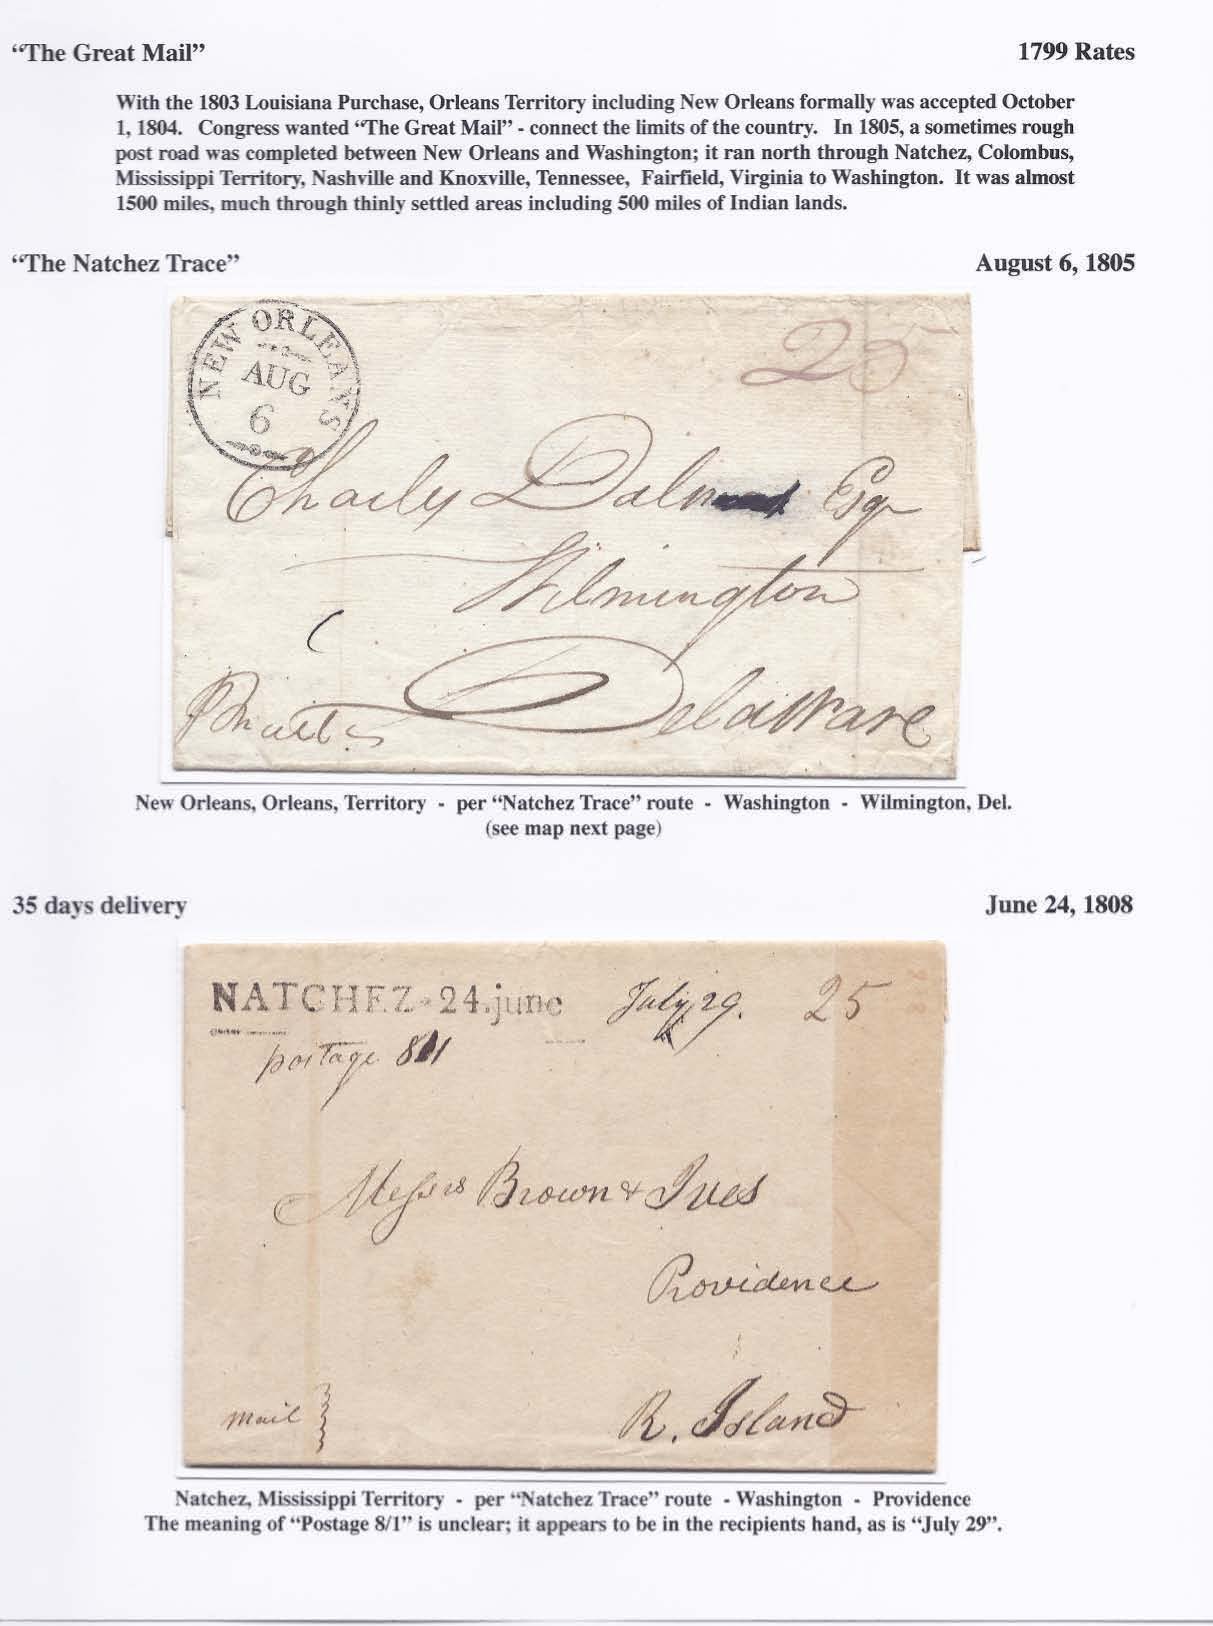 “The Great Mail” 1799 Rates
With the 1803 Louisiana Purchase, Orleans Territory including New Orleans formally was accepted October
1, 1804. Congress wanted “The Great Mail” - connect the limits of the country. In 1805, a sometimes rough
post road was completed between New Orleans and Washington; it ran north through Natchez, Colombus,
Mississippi Territory, Nashville and Knoxville, Tennessee, Fairfield, Virginia to Washington. It was almost
1500 miles, much through thinly settled areas including 500 miles of Indian lands.
“The Natchez Trace” August 6, 1805
NEW ORLEANS
AUG
6
25
Esqr
Wilmington
Delaware
New Orleans, Orleans, Territory - per “Natchez Trace” route - Washington - Wilmington, Del.
(see map next page)
35 days delivery June 24, 1808
NATCHEZ - 24.june July 29. 25
postage
Messrs Brown & Ives
Providence
mail R. Island
Natchez, Mississippi Territory - per “Natchez Trace” route - Washington - Providence
The meaning of “Postage 8/1” is unclear; it appears to be in the recipients hand, as is “July 29”.